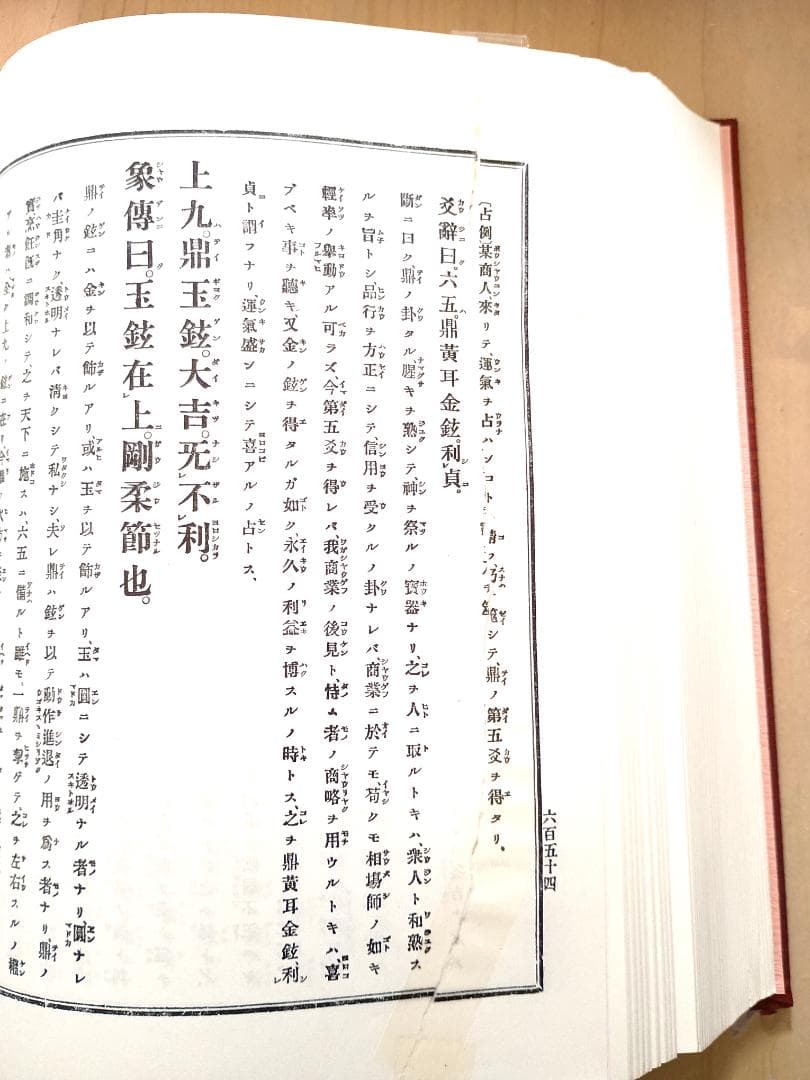 〔占例〕某商人來リテ、運氣ヲ占ハンコトヲシテ、鼎ノ第五爻ヲ得タリ、
爻辭曰。六五。鼎黃耳金鉉。利貞。
斷ニ曰ク鼎ノ卦タル、腥キヲ熟シテ、神ヲ祭ルノ寶器ナリ、之ヲ人ニ取ルトキハ、衆人ト和熟ス
ルヲ旨トシ品行ヲ方正ニシテ、信用ヲ受クルノ卦ナレバ、商業ニ於テモ、苟クモ相場師ノ如キ
輕率ノ擧動アル可ラズ、今第五爻ヲ得レバ、我商業ノ後見ト、恃ム者ノ商略ヲ用ウルトキハ、喜
ブベキ事ヲ聽キ、又金ノ鉉ヲ得タルガ如ク、永久ノ利益ヲ博スルノ時トス、之ヲ鼎黃耳金鉉、利
貞ト謂フナリ、運氣盛ンニシテ喜アルノ占トス、
上九。鼎玉鉉。大吉。无不利。
象傳曰。玉鉉在上。剛柔節也。
鼎ノ鉉ニハ金ヲ以テ飾ルアリ、或ハ玉ヲ以テ飾ルアリ、玉ハ圓ニシテ透明ナル者ナリ、圓ナレ
バ圭角ナク、透明ナレバ淸クシテ私ナシ、夫レ鼎ハ鉉ヲ以テ動作進退ノ用ヲ爲ス者ナリ、鼎ノ
實烹飪既ニ調和シテ、之ヲ天下ニ施スハ、六五ニ備ルト雖モ、一鼎ヲ擧ゲテ、之ヲ左右スルノ權
六百五十四